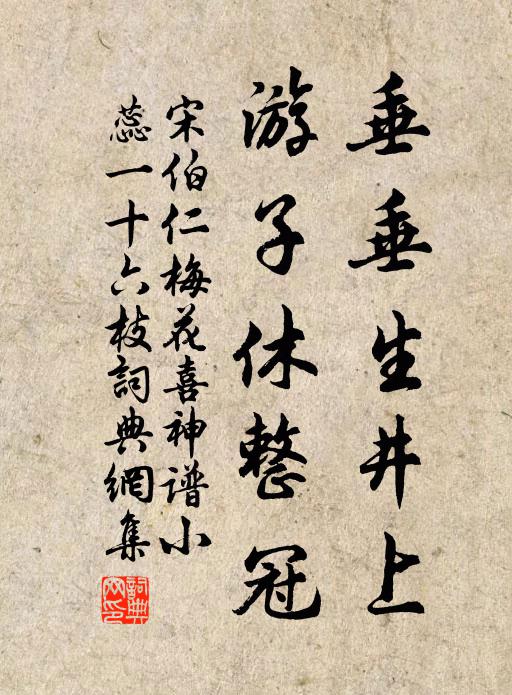 垂垂生井上
游子休整冠
宋伯仁梅花喜神谱小
蕊一十六枝詞典網集
詞典
网印